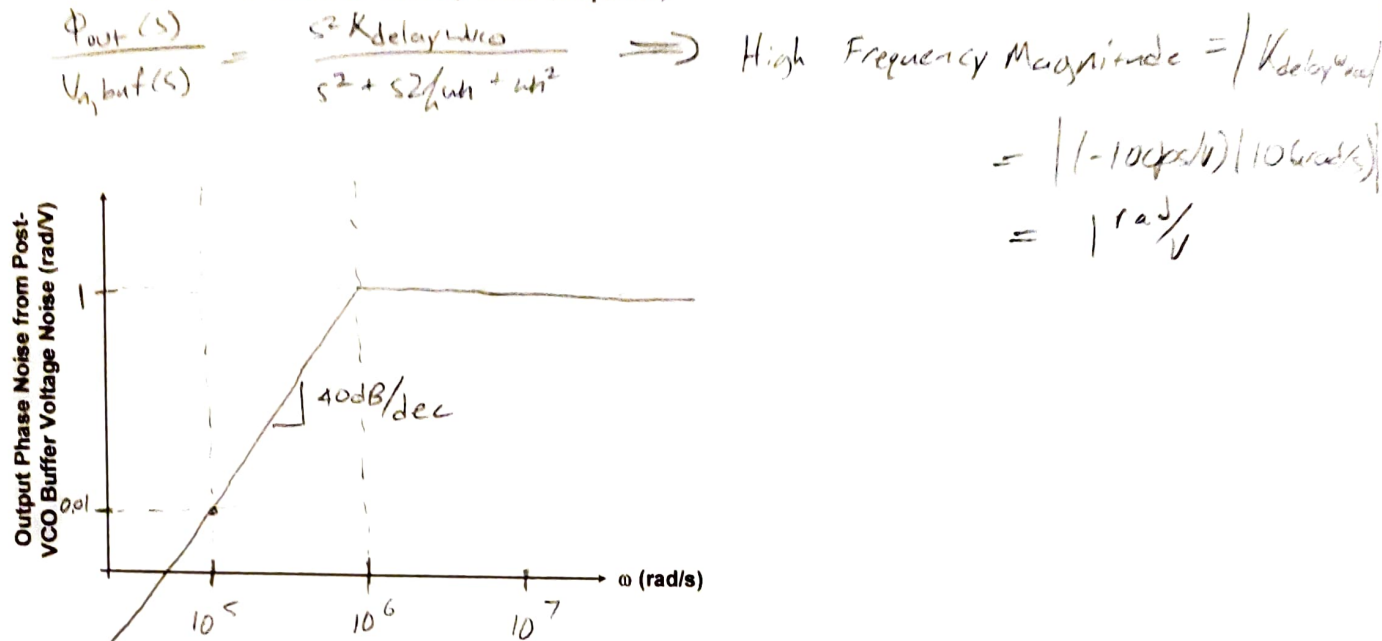 Φout(s) / Vn,buf(s) = s² Kdelay ωvco / s² + s2ζωn + ωn² ⟹ High Frequency Magnitude = |Kdelay ωvco|
= |(-100ps/V)(10Grad/s)|
= 1 rad/V
Output Phase Noise from Post-
VCO Buffer Voltage Noise (rad/V)
1
40dB/dec
0.01
ω (rad/s)
10⁵ 10⁶ 10⁷